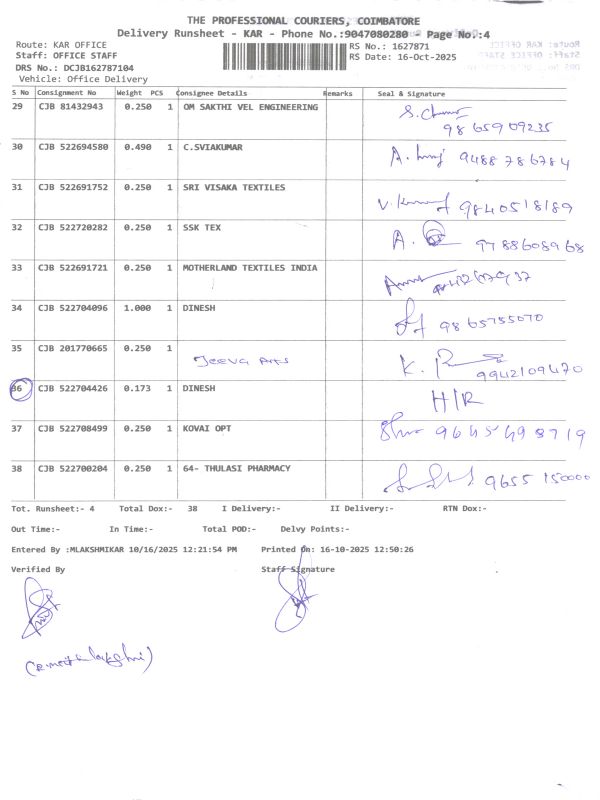 THE PROFESSIONAL COURIERS, COIMBATORE
Delivery Runsheet - KAR - Phone No.:9047080280 Page No.:4
Route: KAR OFFICE
Staff: OFFICE STAFF
DRS No.: DCJB162787104
Vehicle: Office Delivery
RS No.: 1627871
RS Date: 16-Oct-2025
S No Consignment No Weight PCS Consignee Details Remarks Seal & Signature
29 CJB 81432943 0.250 1 OM SAKTHI VEL ENGINEERING
9865909235
30 CJB 522694580 0.490 1 C.SVIAKUMAR 9488786784
31 CJB 522691752 0.250 1 SRI VISAKA TEXTILES
9840518189
32 CJB 522720282 0.250 1 SSK TEX
9788608968
33 CJB 522691721 0.250 1 MOTHERLAND TEXTILES INDIA
34 CJB 522704096 1.000 1 DINESH
9865755070
35 CJB 201770665 0.250 1
Jeeva Arts
9942109470
36 CJB 522704426 0.173 1 DINESH H/R
37 CJB 522708499 0.250 1 KOVAI OPT
38 CJB 522700204 0.250 1 64- THULASI PHARMACY
9655 150000
Tot. Runsheet:- 4 Total Dox:- 38 I Delivery:- II Delivery:- RTN Dox:-
Out Time:- In Time:- Total POD:- Delvy Points:-
Entered By :MLAKSHMIKAR 10/16/2025 12:21:54 PM Printed On: 16-10-2025 12:50:26
Verified By Staff Signature